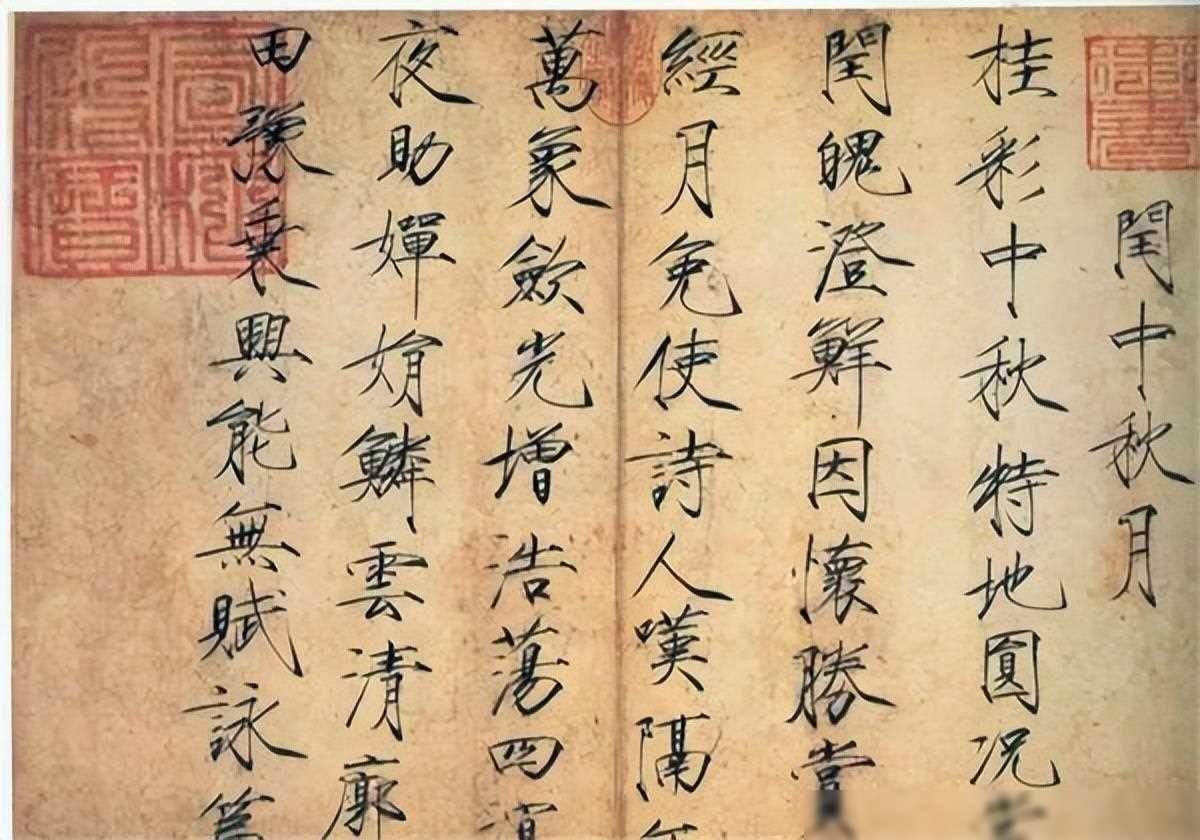 閏中秋月
桂彩中秋特地圓況
閏魄澄鮮因懷勝賞
經月免使詩人嘆隔
萬象歛光增浩蕩四
夜助嬋娟鱗雲清廓
田豫乘興能無賦詠篇